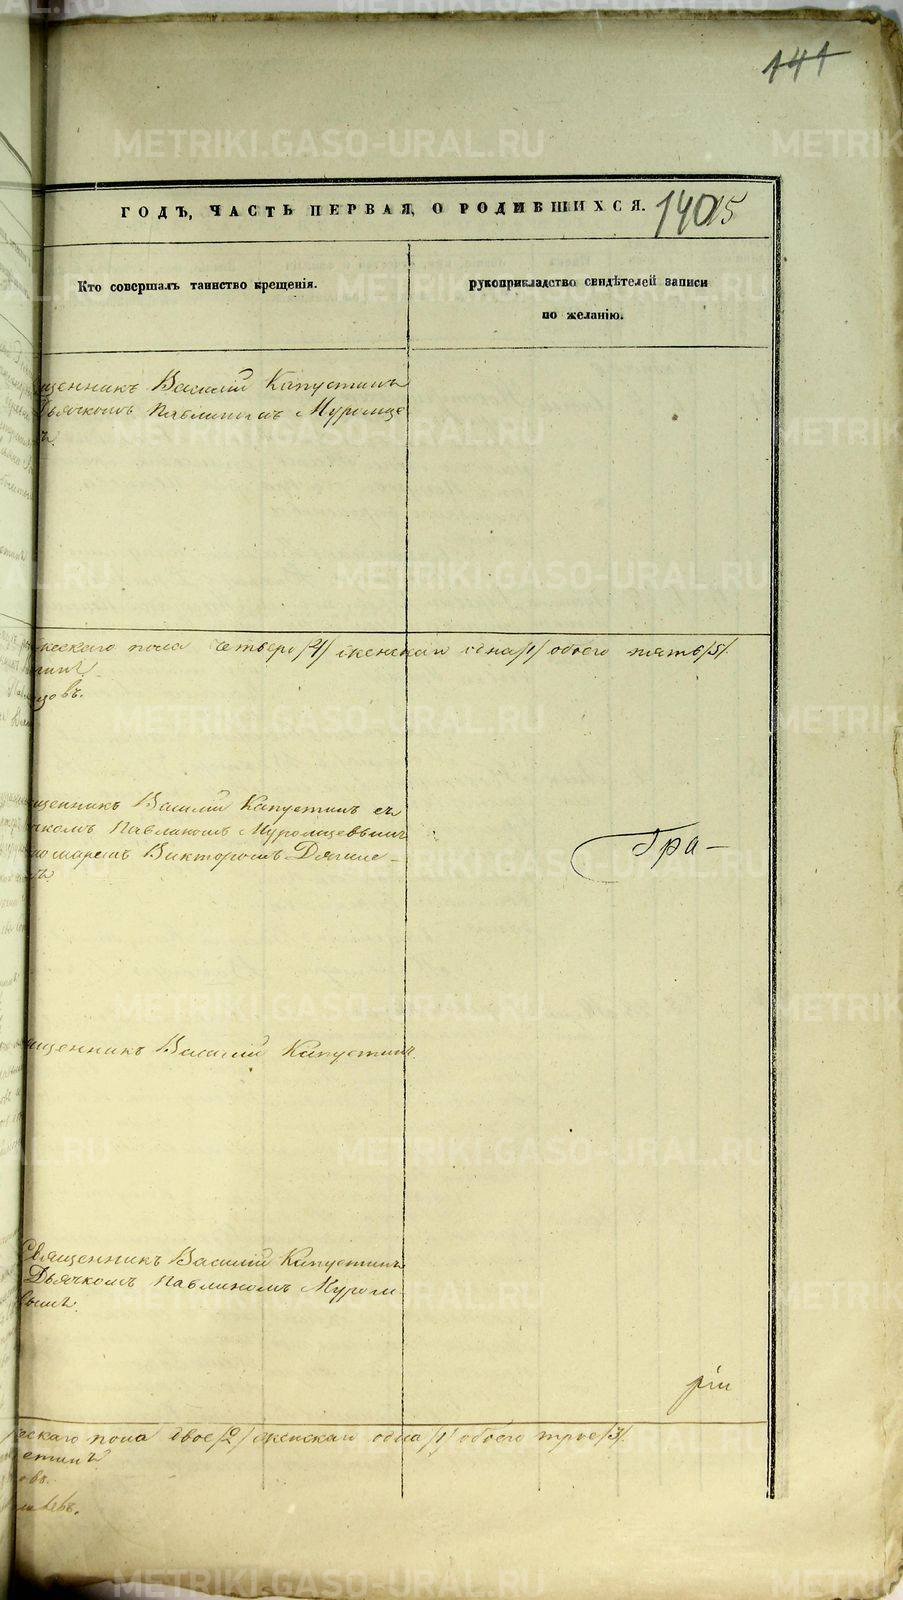 141
ГОДЪ, ЧАСТЬ ПЕРВАЯ, О РОДИВШИХСЯ. 140 15
Кто совершалъ таинство крещенія.
рукоприкладство свидѣтелей записи
по желанію.
щенникъ Василій Капустинъ
Дьячкомъ Павлиномъ Муромце
ъ.
жескаго пола четверо /4/ женскаго одна /1/ обоего пять /5/.
стинъ.
цовъ.
щенникъ Василій Капустинъ съ
чкомъ Павлиномъ Муромцевымъ
номаремъ Викторомъ Дягиле-
Гра-
ященникъ Василій Капустинъ.
Священникъ Василій Капустинъ
Дьячкомъ Павлиномъ Муром-
вымъ.
ріи
ескаго пола двое /2/ женскаго одна /1/ обоего трое /3/.
стинъ
овъ.
METRIKI.GASO-URAL.RU